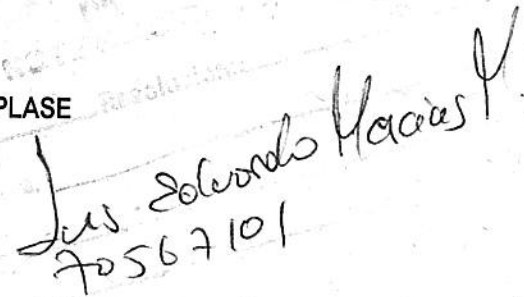 PLASE
Luis Eduardo Macias M.
70567101